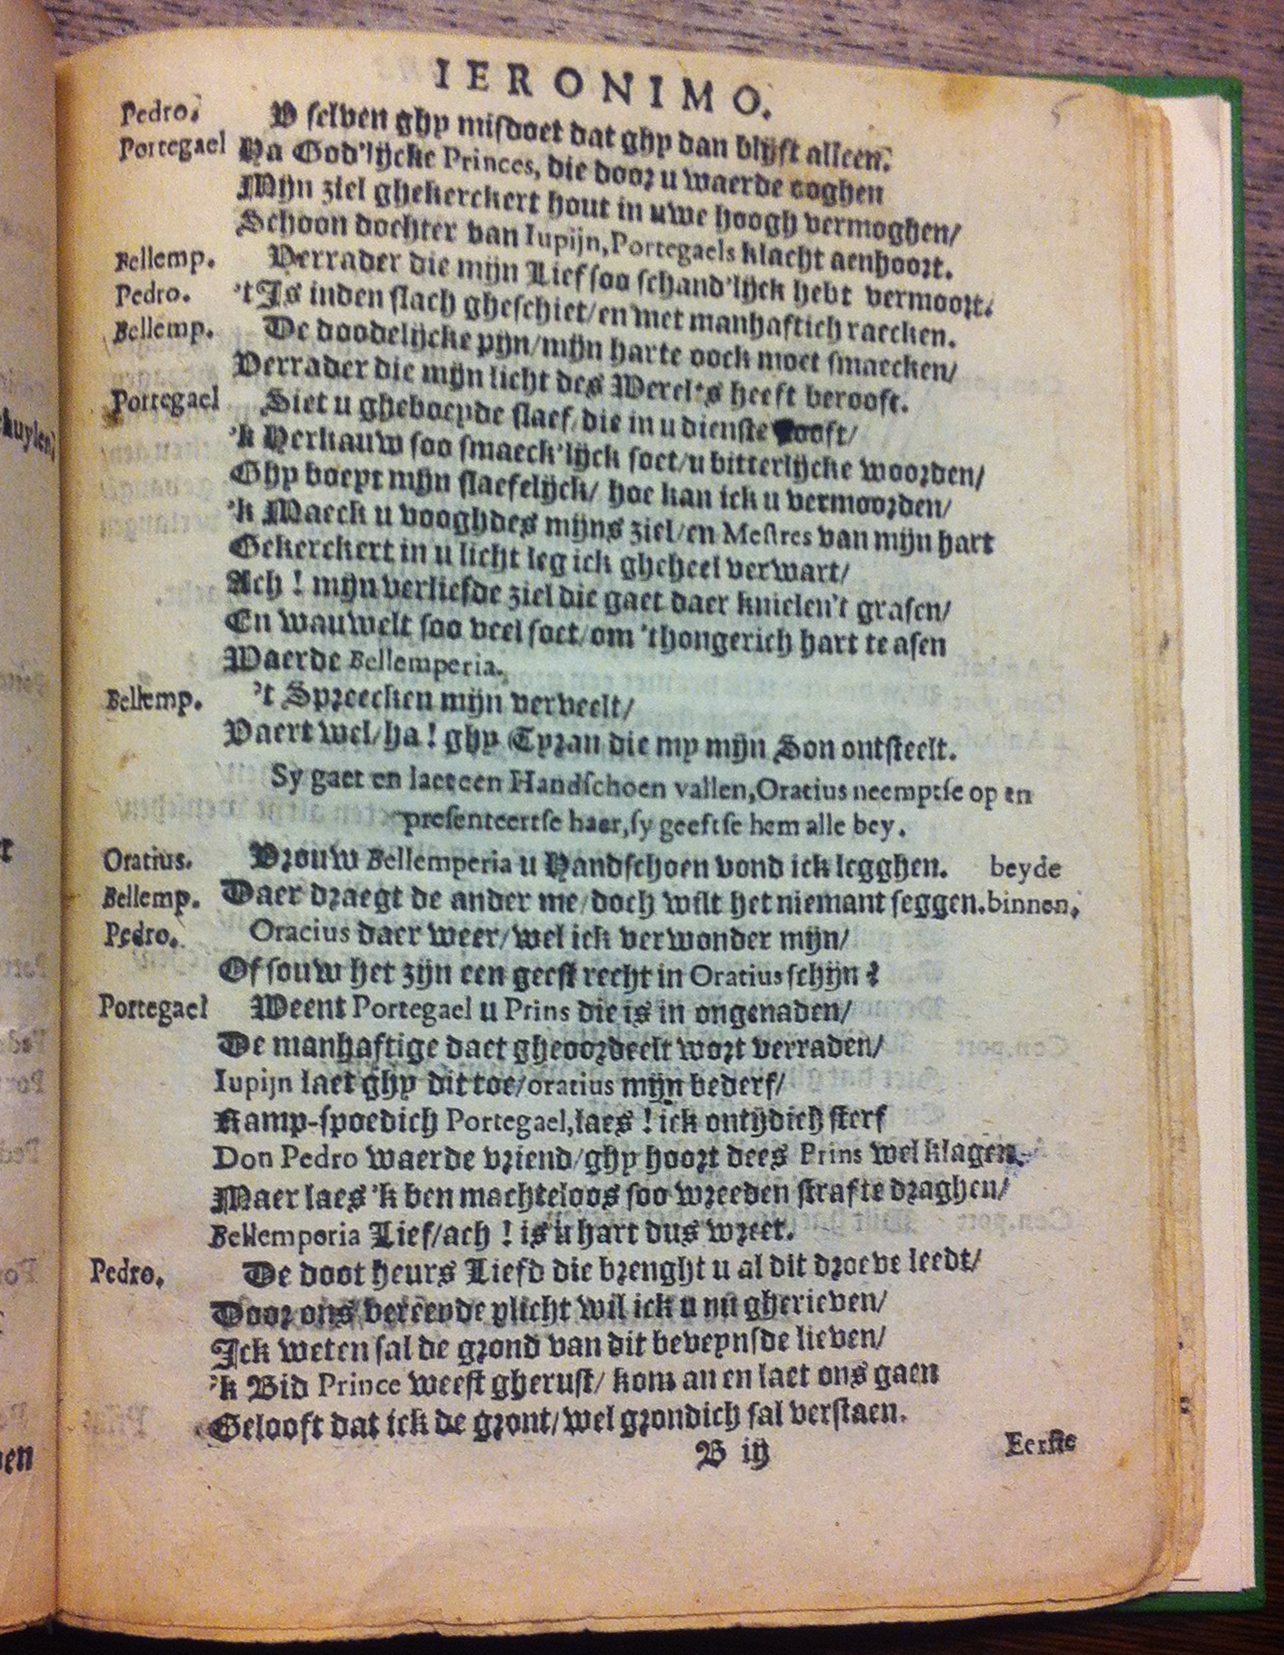 IERONIMO.
Pedro. V selven ghy misdoet dat ghy dan blijft alleen.
Portegael Ha God'lijcke Princes, die door u waerde ooghen
Mijn ziel ghekerckert hout in uwe hoogh vermoghen/
Schoon dochter van Iupijn, Portegaels klacht aenhoort.
Bellemp. Verrader die mijn Lief soo schand'lijck hebt vermoort.
Pedro. 't Is inden slach gheschiet/en met manhaftich raecken.
Bellemp. De doodelijcke pijn/mijn harte oock moet smaecken/
Verrader die mijn licht des Werelts heeft berooft.
Portegael Siet u gheboeyde slaef/die in u dienste
'k Herkauw soo smaeck'lijck soet/u bitterlijcke woorden/
Ghy boeyt mijn slaefelijck/ hoe kan ick u vermoorden/
'k Maeck u vooghdes mijns ziel/en Mestres van mijn hart
Gekerckert in u licht leg ick gheheel verwart/
Ach ! mijn verliefde ziel die gaet daer knielen't grasen/
En wauwelt soo veel soet/om 'thongerich hart te asen
Waerde Bellemperia.
Bellemp. 't Spreecken mijn verveelt/
Vaert wel/ha ! ghy Tyran die my mijn Son ontsteelt.
Sy gaet en laet een Handschoen vallen, Oratius neemptse op en
presenteertse haer, sy geeftse hem alle bey.
Oratius. Vrouw Bellemperia u Handschoen vond ick legghen. beyde
Bellemp. Daer draegt de ander me/doch wilt het niemant seggen. binnen.
Pedro. Oracius daer weer/wel ick verwonder mijn/
Of souw het zijn een geest recht in Oratius schijn ?
Portegael Weent Portegael u Prins die is in ongenaden/
De manhaftige daet gheoordeelt wort verraden/
Iupijn laet ghy dit toe/oratius mijn bederf/
Kamp-spoedich Portegael, laes ! ick ontijdich sterf
Don Pedro waerde vriend/ghy hoort dees Prins wel klagen.
Maer laes 'k ben machteloos soo wreeden straf te draghen/
Bellemperia Lief/ach ! is u hart dus wreet.
Pedro. De doot heurs Liefd die brenght u al dit droeve leedt/
Door ons vereende plicht wil ick u nu gherieven/
Ick weten sal de grond van dit beveynsde lieven/
'k Bid Prince weest gherust/ kom an en laet ons gaen
Gelooft dat ick de gront/wel grondich sal verstaen.
B iij Eerste